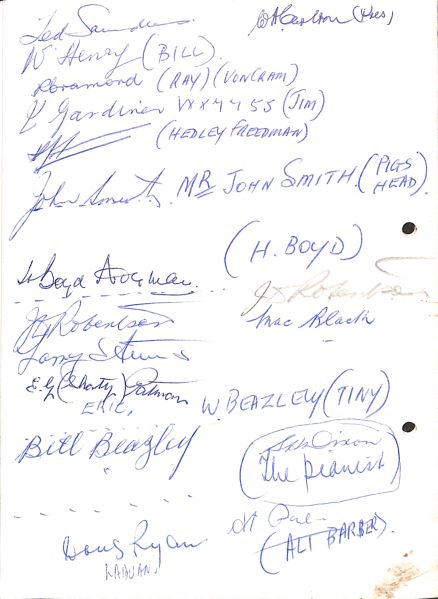 Ted Saunders.
W Henry (BILL).
(RAY) (VONCRAM)
Gardiner VX 4455 (JIM)
(HEDLEY FREEDMAN)
John Smith MR JOHN SMITH. (PIGS HEAD.)
(H. BOYD)
H Boyd
J Robertson
J Robertson
Mac Black
Larry
E.G. (Shorty)
ERIC,
W. BEAZLEY (TINY)
Bill Beazley
Dixon
The Pianist
(ALI BARBER).
Doug Ryan
LABUAN.